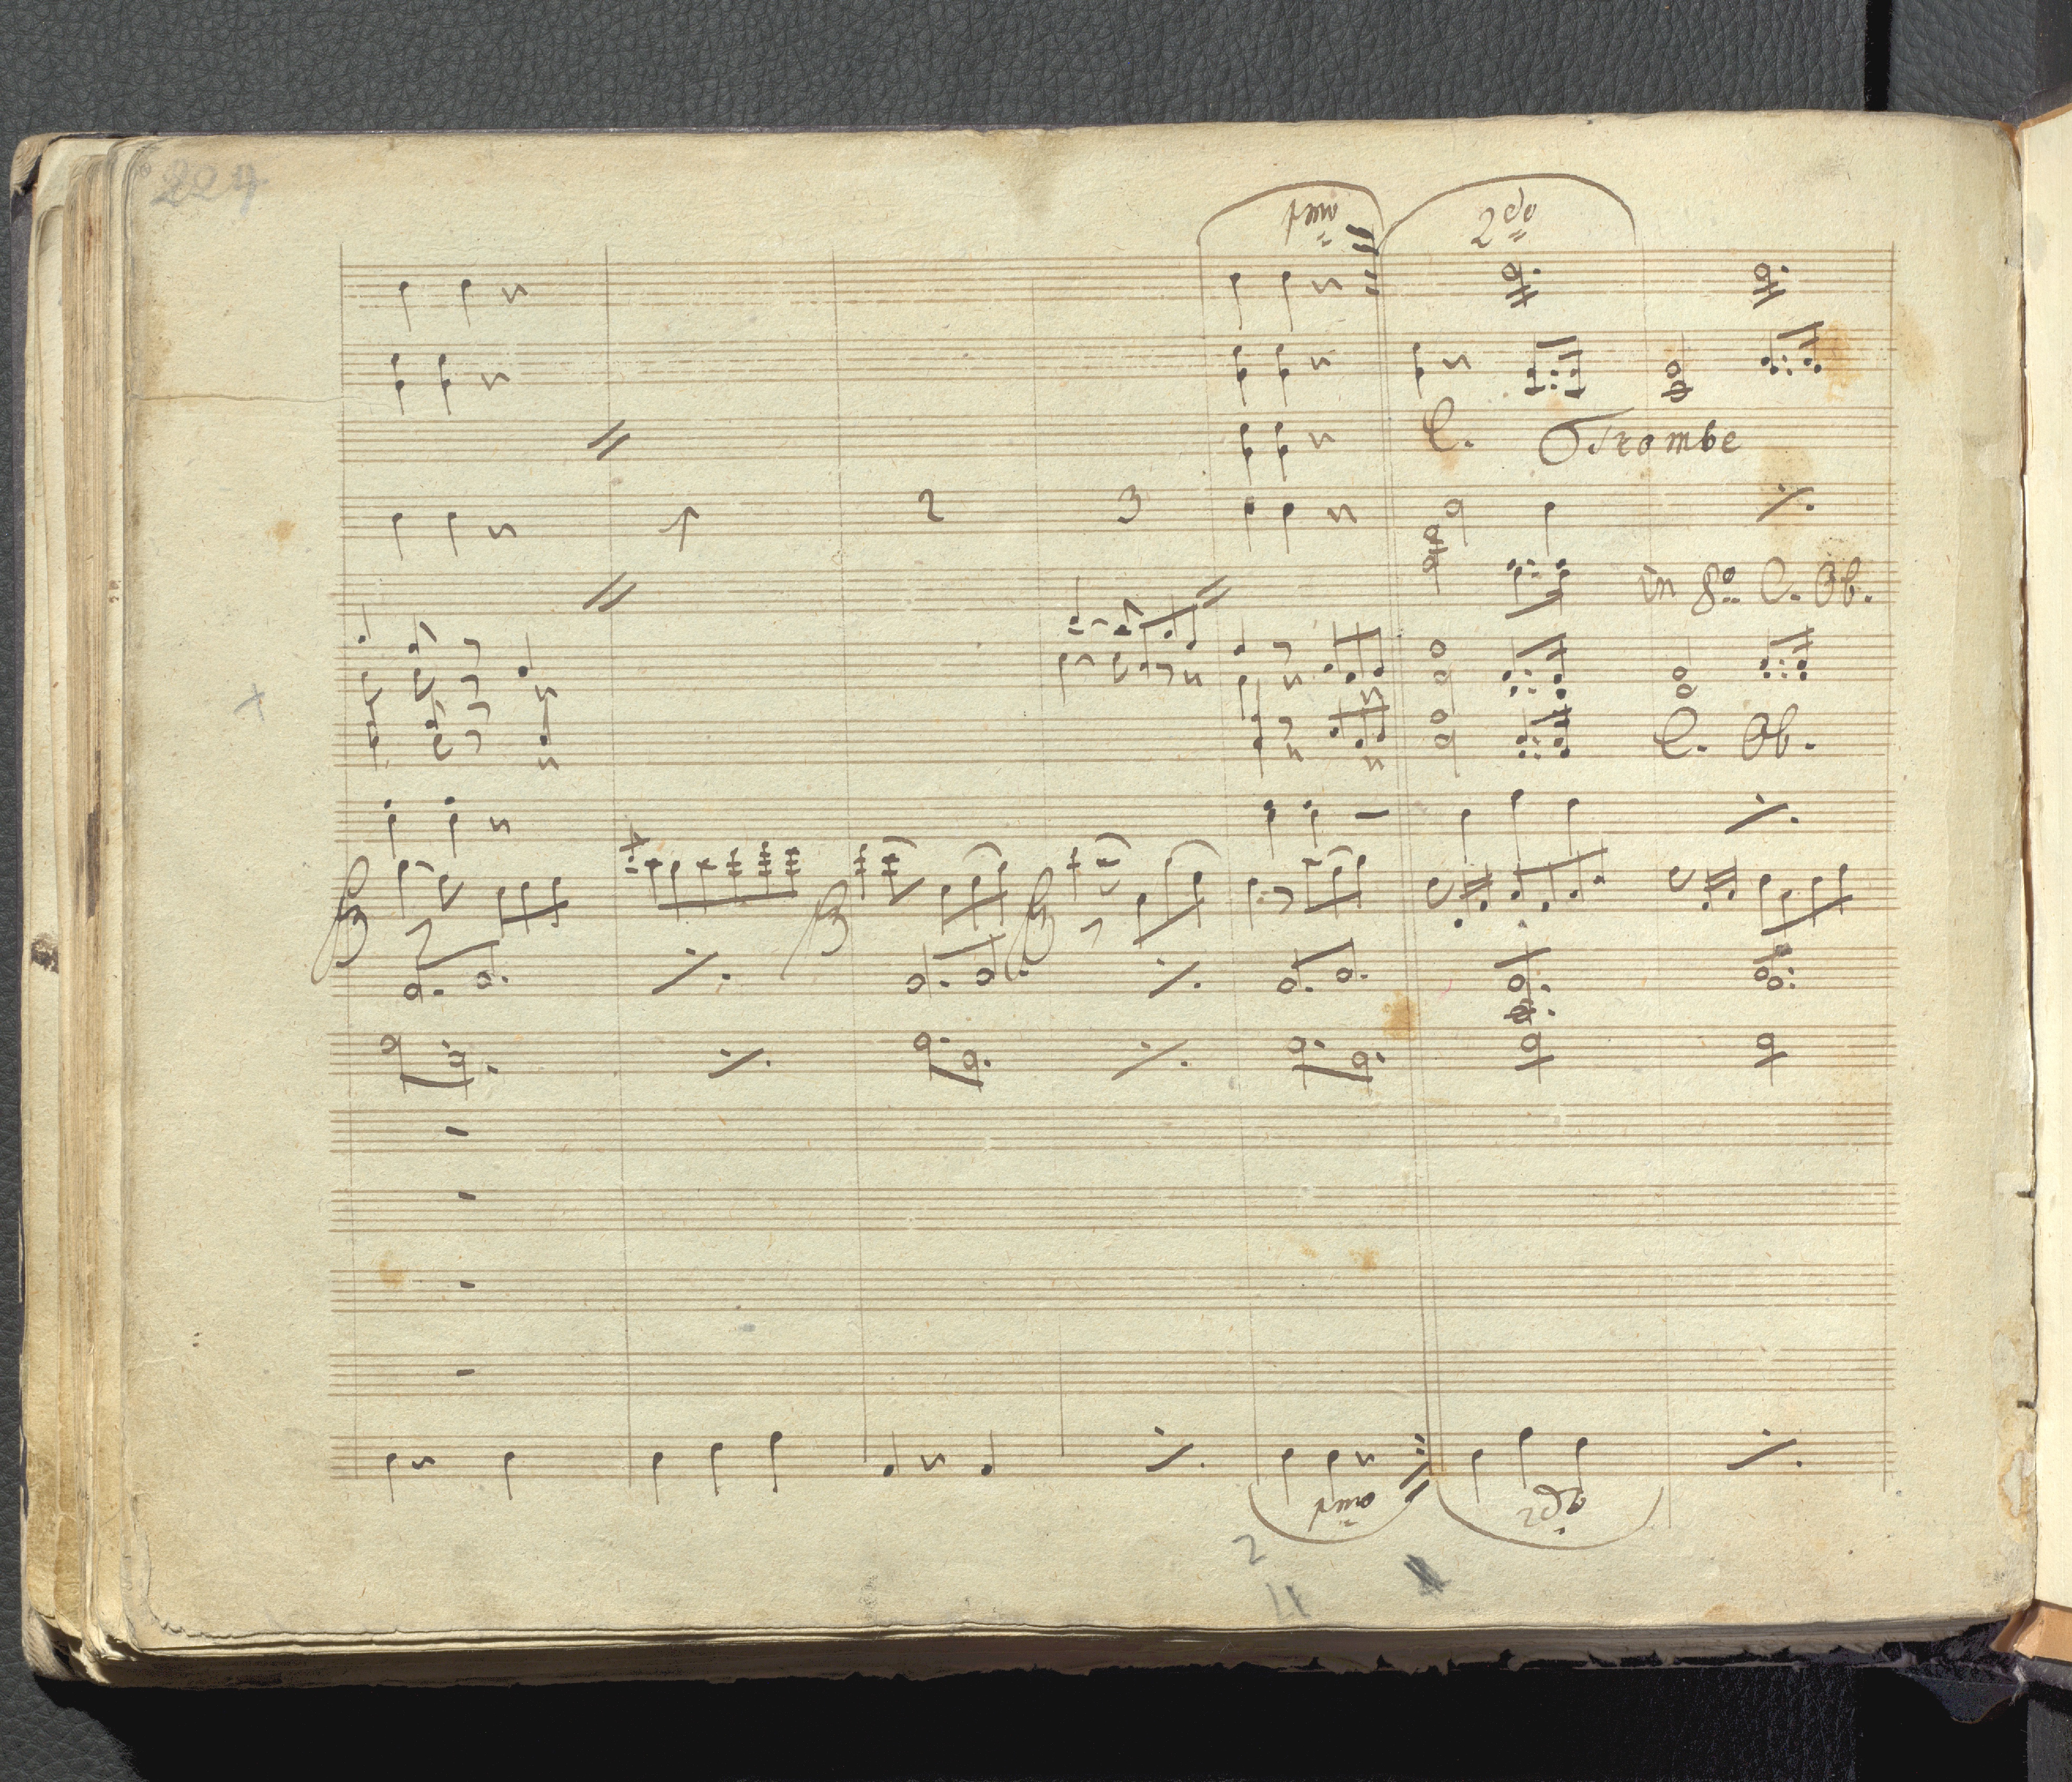 207
pmo 2do
C. Trombe
1 2 3
in 8o. C. Ob.
C. Ob.
pmo 2do
2
4